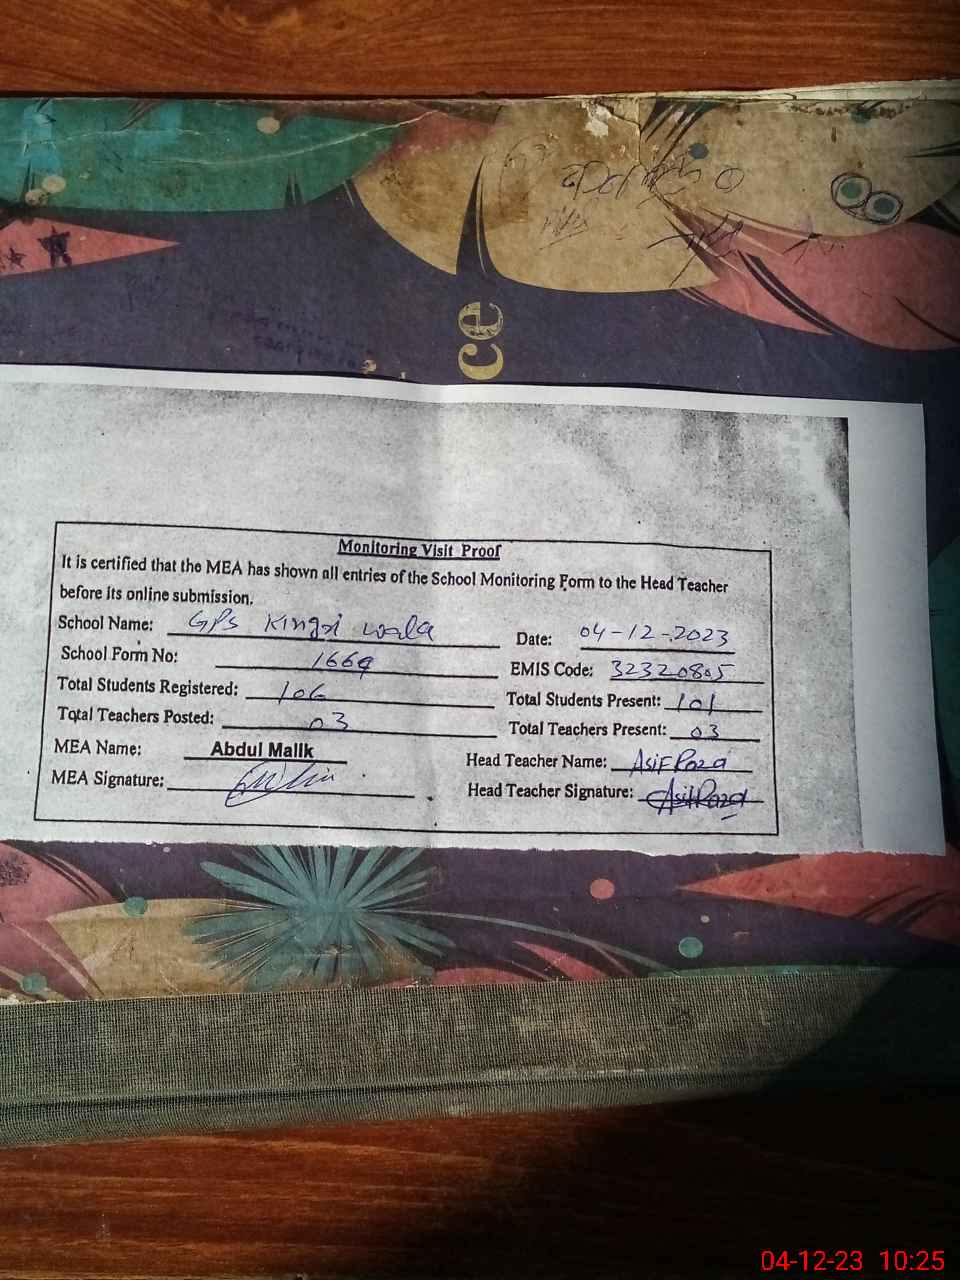 ce
Monitoring Visit Proof
It is certified that the MEA has shown all entries of the School Monitoring Form to the Head Teacher
before its online submission.
School Name: GPS Kingri wala Date: 04-12-2023
School Form No: 1669 EMIS Code: 32320805
Total Students Registered: 106 Total Students Present: 101
Total Teachers Posted: 03 Total Teachers Present: 03
MEA Name: Abdul Malik Head Teacher Name: Asif Raza
MEA Signature: Head Teacher Signature: Asif Raza
04-12-23 10:25